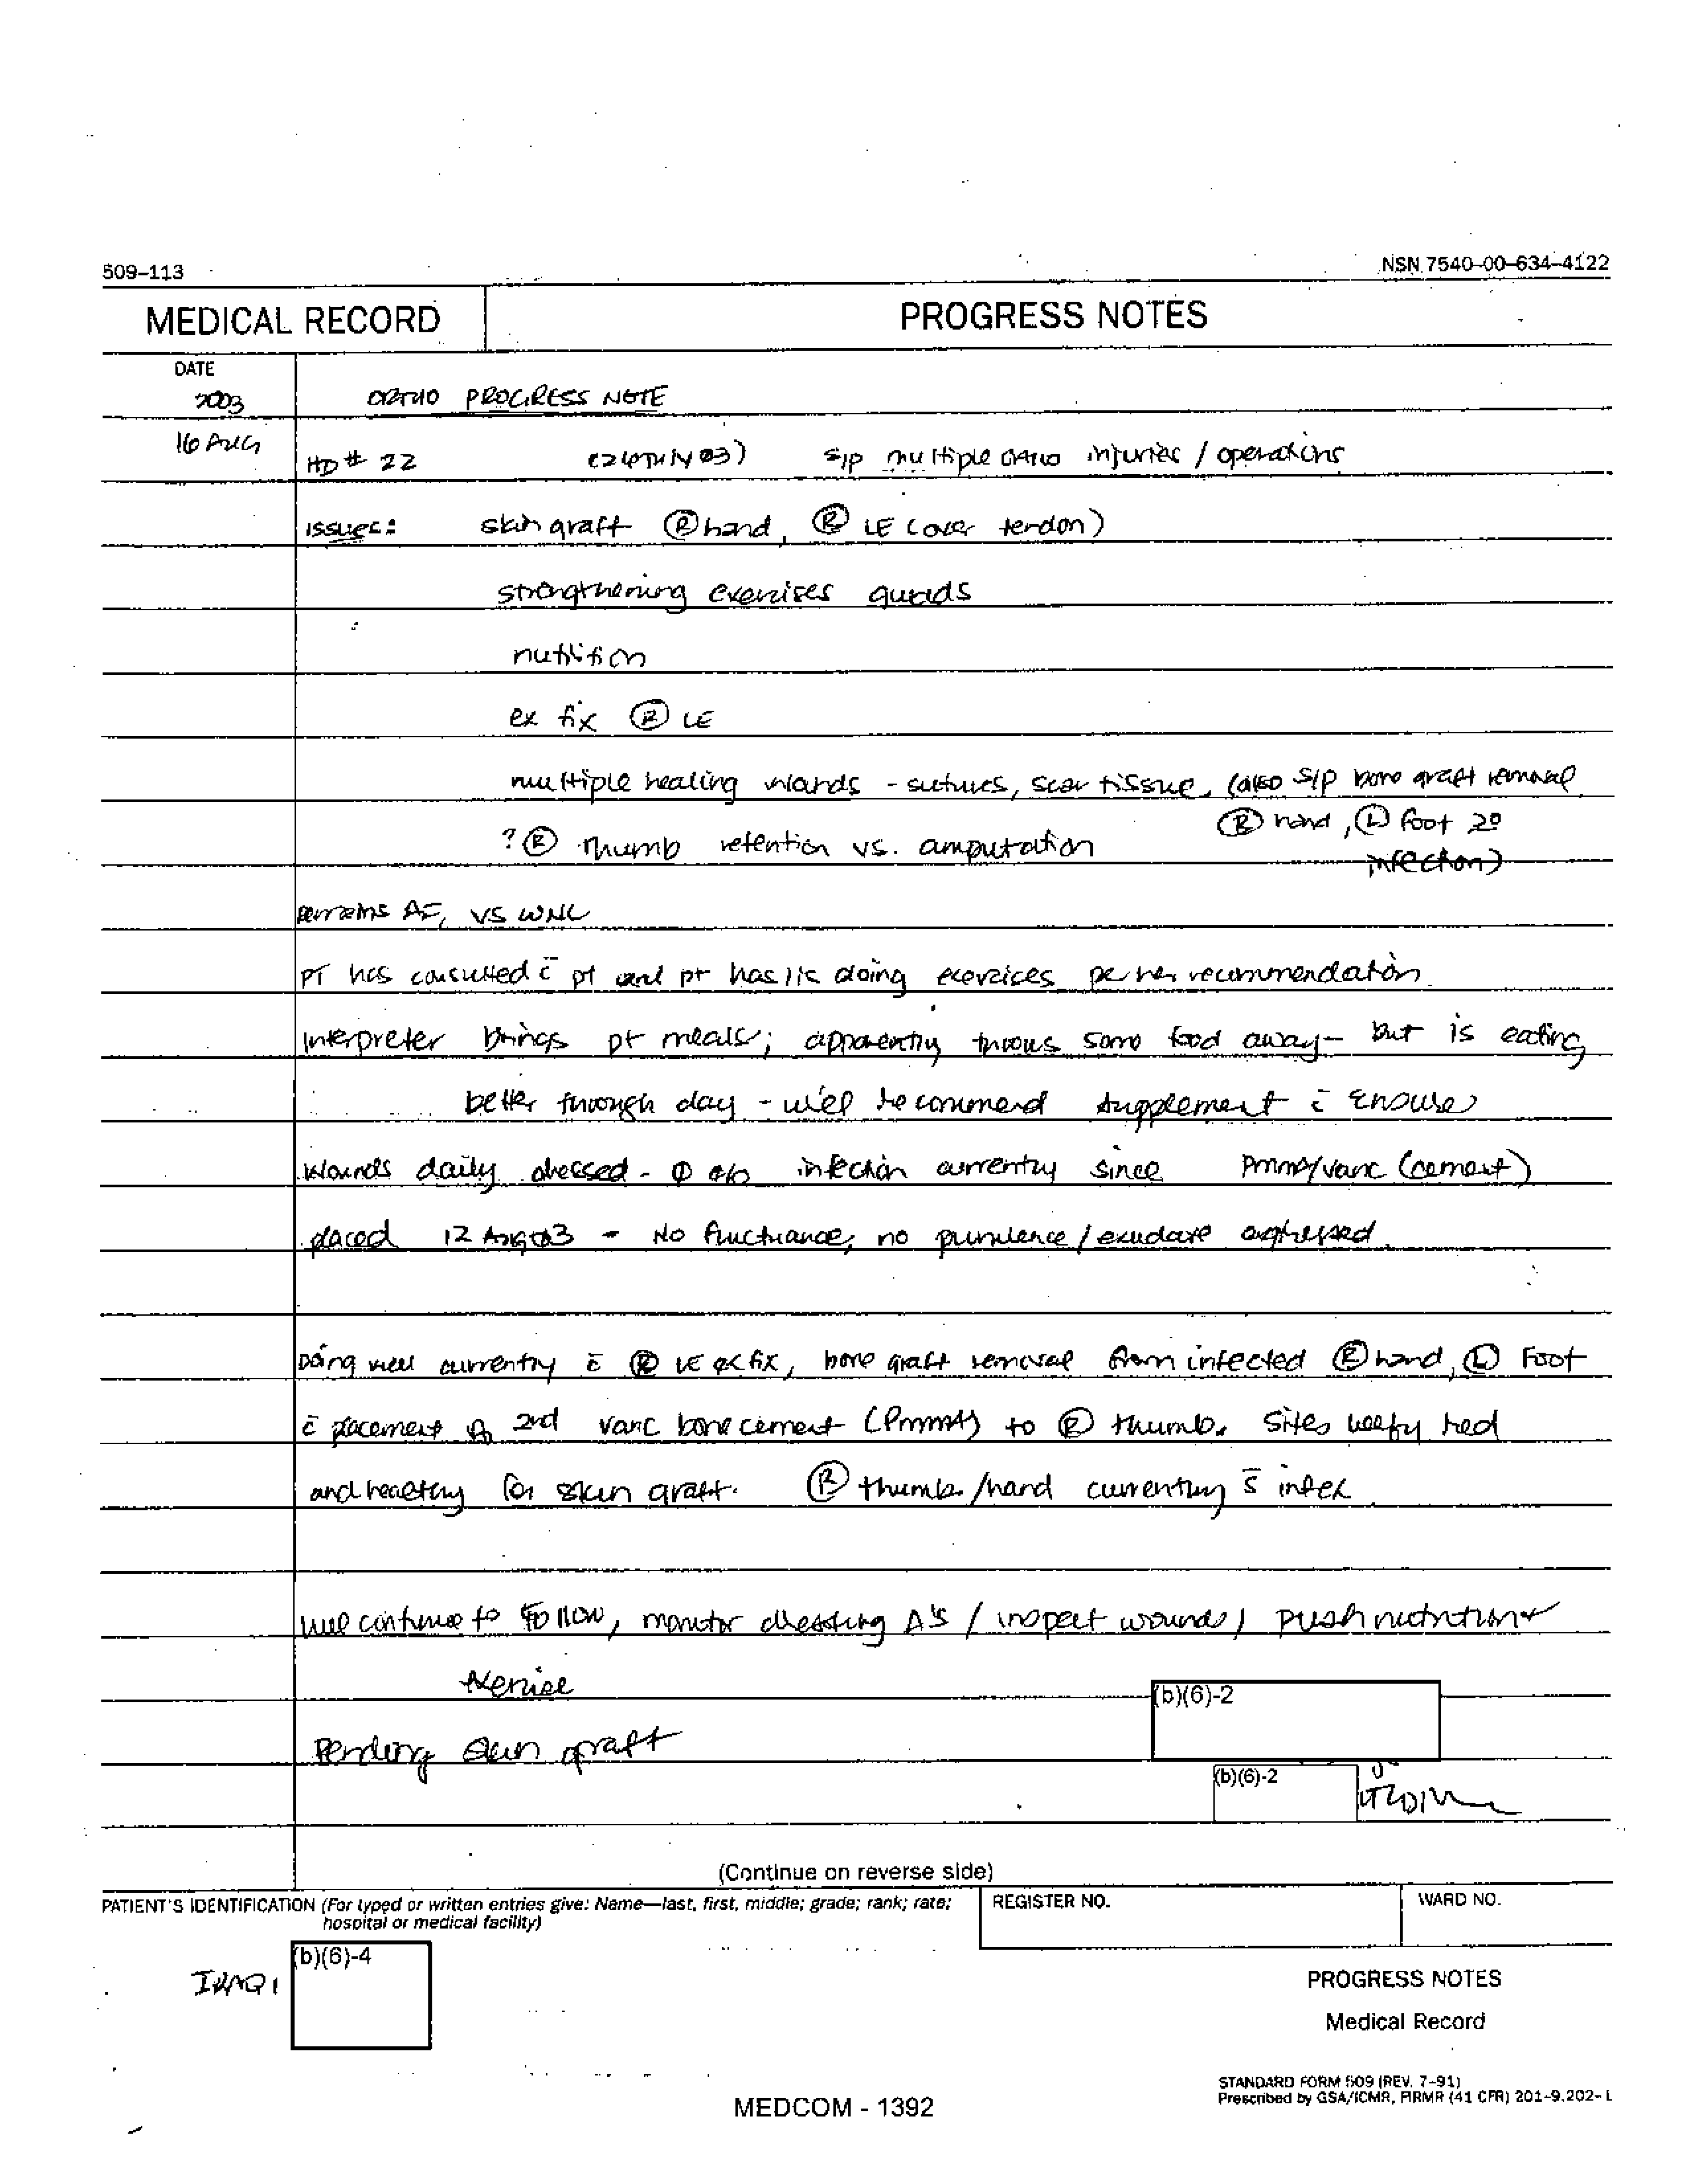 509-113
NSN 7540-00-634-4122
MEDICAL RECORD
PROGRESS NOTES
DATE
2003
ORTHO PROGRESS NOTE
16 AUG
HD # 22 S/P multiple ortho injuries / operations
issues: skin graft Ⓡ hand, Ⓡ LE (over tendon)
strengthening exercises quads
nutrition
ex fix Ⓡ LE
multiple healing wounds - sutures, scar tissue, (also S/P bone graft removal
Ⓡ hand, Ⓛ foot 2º
? Ⓡ Thumb retention vs. amputation
infection)
Remains AF, VS WNL
PT has consulted c̄ pt and pt has doing exercises per her recommendation
Interpreter brings pt meals; apparently throws some food away - but is eating
better through day - will recommend supplement c̄ Ensure
Wounds daily dressed - infection currently since PMMA/vanc (cement)
placed 12 Aug 03 - No fluctuance, no purulence / exudate
Doing well currently c̄ Ⓡ LE ex fix, bone graft removal from infected Ⓡ hand, Ⓛ Foot
c̄ placement of 2nd vanc bone cement (PMMA) to Ⓡ thumb. Sites beefy red
and healthy for skin graft. Ⓡ thumb/hand currently s̄ infex
will continue to follow, monitor dressing Δ's / inspect wounds / push nutrition
Pending skin graft
(b)(6)-2
(b)(6)-2
(Continue on reverse side)
PATIENT'S IDENTIFICATION (For typed or written entries give: Name—last, first, middle; grade; rank; rate;
hospital or medical facility)
REGISTER NO.
WARD NO.
(b)(6)-4
IRAQI
PROGRESS NOTES
Medical Record
STANDARD FORM 509 (REV. 7-91)
Prescribed by GSA/ICMR, FIRMR (41 CFR) 201-9.202-1
MEDCOM - 1392